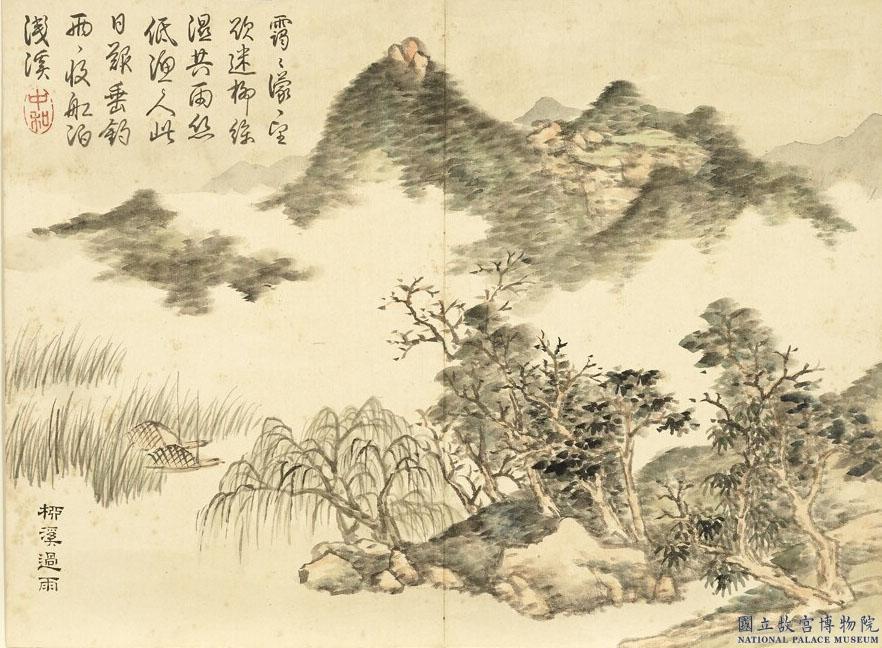 靄〻濛〻望
欲迷柳
濕共雨絲
低漁人此
日垂釣
兩〻收船泊
淺溪
中和
柳溪過雨
國立故宮博物院
NATIONAL PALACE MUSEUM